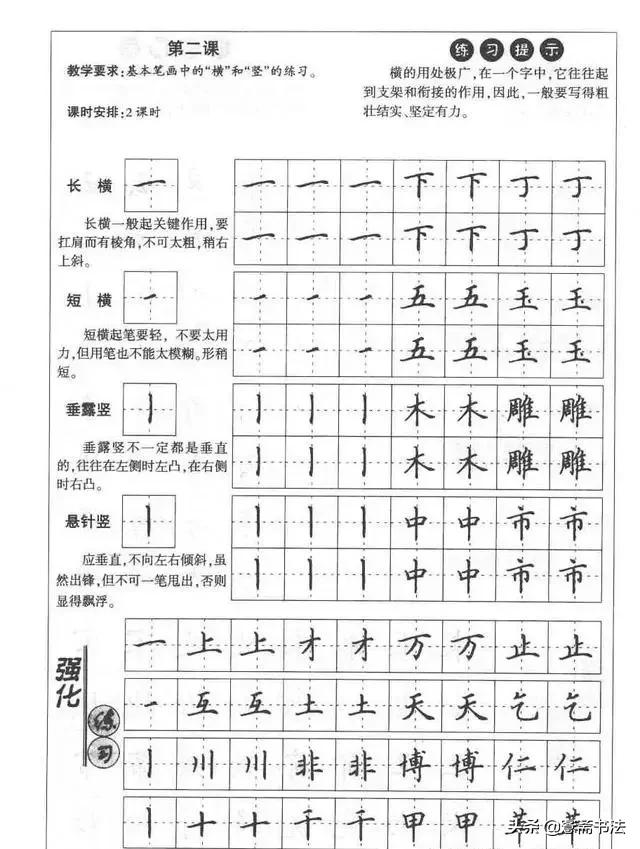 第二课
教学要求：基本笔画中的“横”和“竖”的练习。
课时安排：2课时
练习提示
横的用处极广，在一个字中，它往往起
到支架和衔接的作用，因此，一般要写得粗
壮结实、坚定有力。
长横 一 一 一 一 下 下 丁 丁
一 一 一 下 下 丁 丁
长横一般起关键作用，要
扛肩而有棱角，不可太粗，稍右
上斜。
短横 一 一 一 一 五 五 玉 玉
一 一 一 五 五 玉 玉
短横起笔要轻，不要太用
力，但用笔也不能太模糊。形稍
短。
垂露竖 丨 丨 丨 丨 木 木 雕 雕
丨 丨 丨 木 木 雕 雕
垂露竖不一定都是垂直
的，往往在左侧时左凸，在右侧
时右凸。
悬针竖 丨 丨 丨 丨 中 中 市 市
丨 丨 丨 中 中 市 市
应垂直，不向左右倾斜，虽
然出锋，但不可一笔甩出，否则
显得飘浮。
强化
练习
一 上 上 才 才 万 万 止 止
一 互 互 土 土 天 天 乞 乞
丨 川 川 非 非 博 博 仁 仁
丨 十 十 干 干 甲 甲
头条@壹斋书法